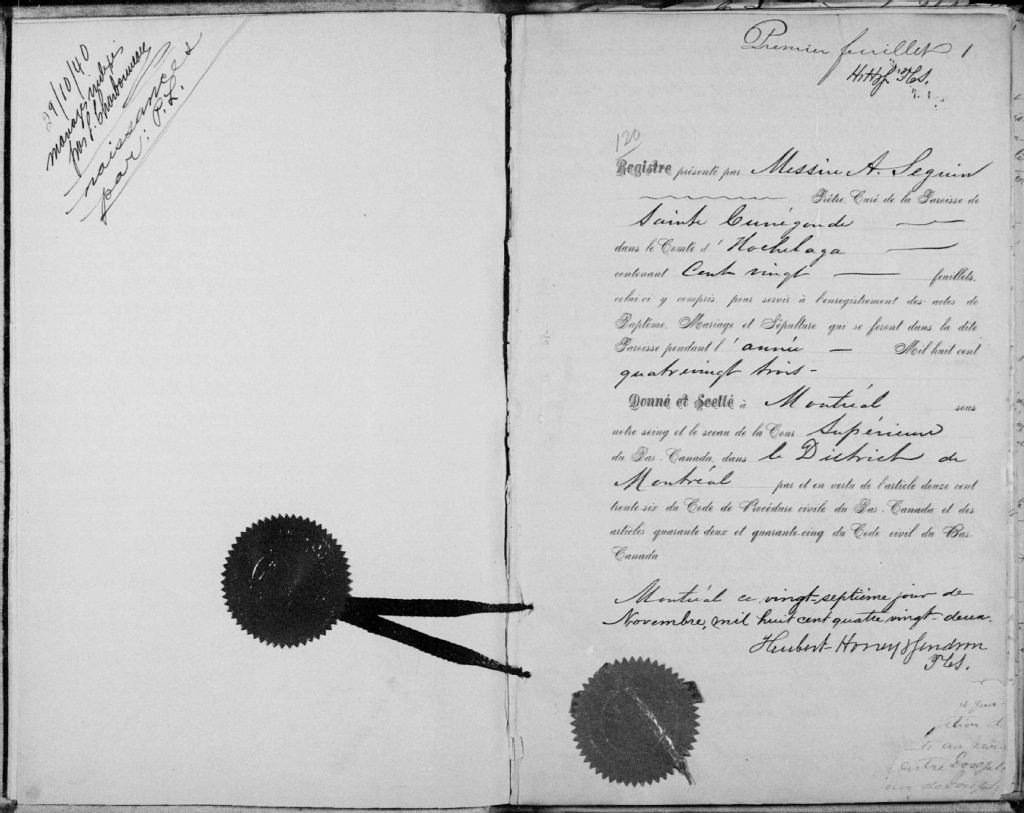 29/10/40
mariages indexés
par P. Charbonneau
naissances
par: P.L.
Premier feuillet 1
HH&G. Pts.
120
Registre présenté par Messire A. Seguin
Prêtre, Curé de la Paroisse de
Sainte Cunégonde
dans le Comté d' Hochelaga
contenant Cent vingt feuillets,
celui-ci y compris, pour servir à l'enregistrement des actes de
Baptême, Mariage et Sépulture qui se feront dans la dite
Paroisse pendant l' année — Mil huit cent
quatrevingt trois -
Donné et Scellé à Montréal sous
notre seing et le sceau de la Cour Supérieure
du Bas-Canada, dans le District de
Montréal par et en vertu de l'article douze cent
trente-six du Code de Procédure civile du Bas-Canada et des
articles quarante-deux et quarante-cinq du Code civil du Bas
Canada
Montréal ce vingt-septième jour de
Novembre, mil huit cent quatre vingt-deux.
Hubert Honey & Gendron
Pts.
entre